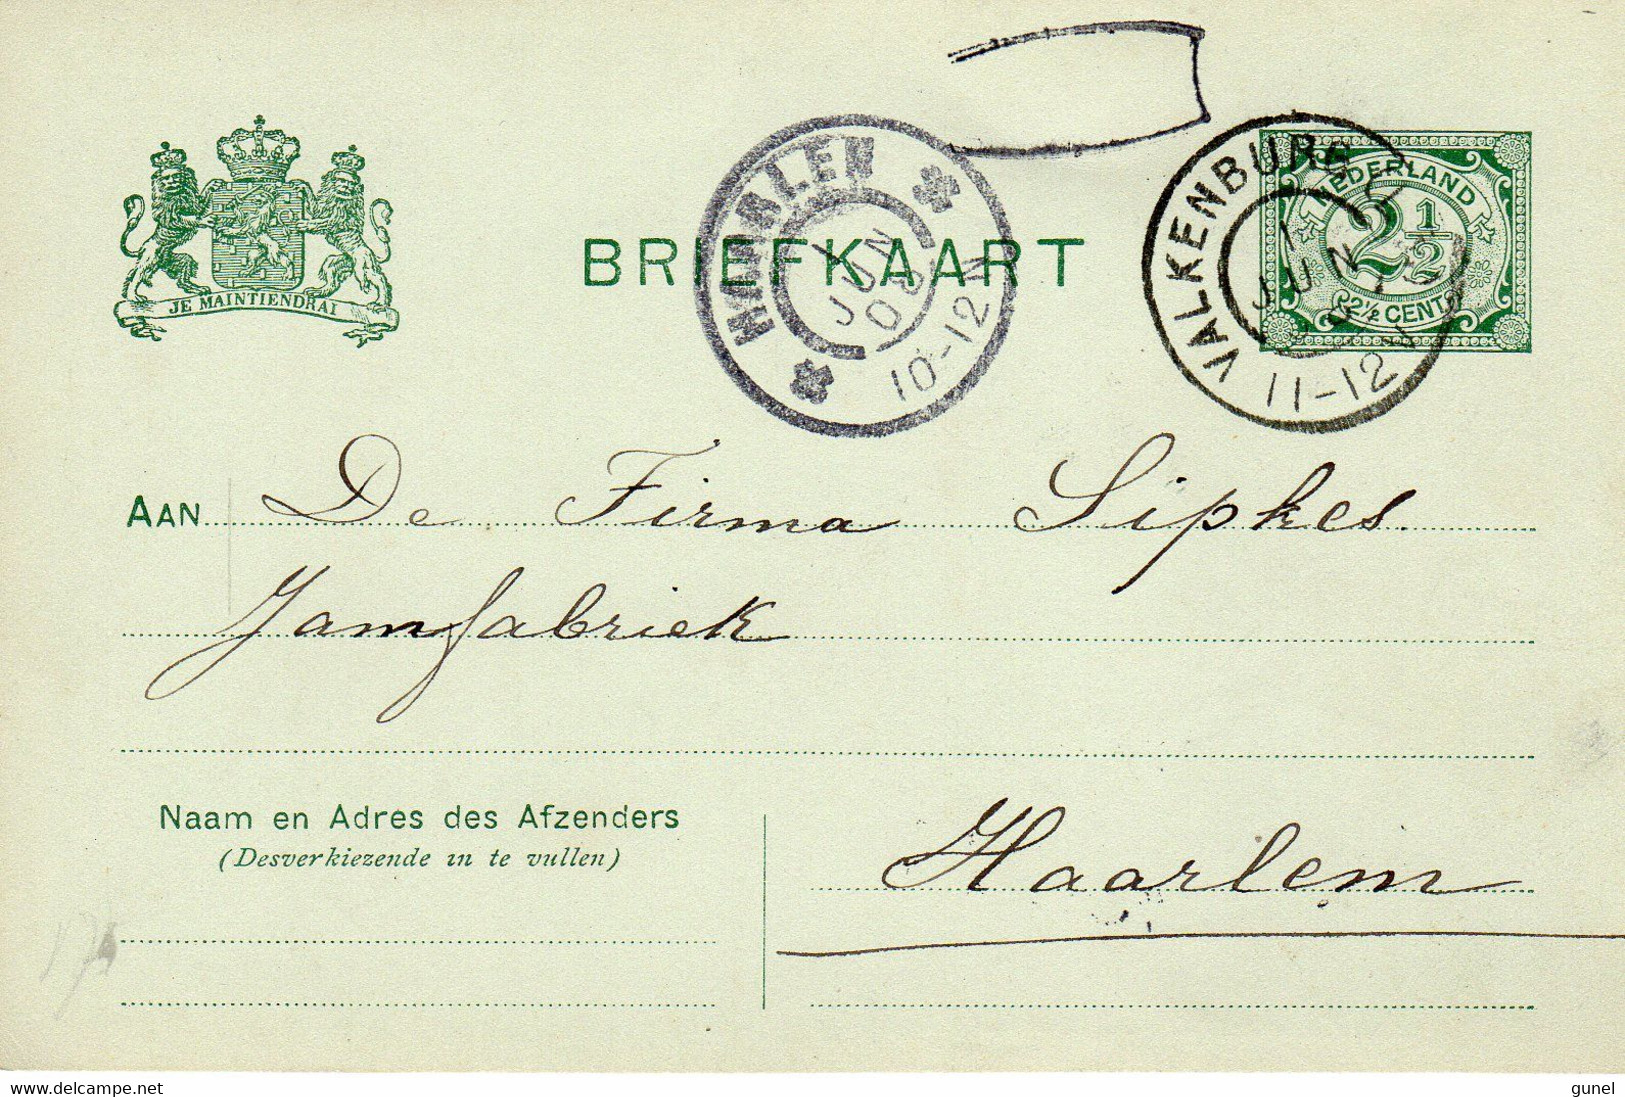 BRIEFKAART
JE MAINTIENDRAI
NEDERLAND
2 1/2
2½ CENT
VALKENBURG
1
JUN
11-12
1
JUN
08
10-12 N
AAN De Firma Sipkes.
Jamfabriek
Naam en Adres des Afzenders
(Desverkiezende in te vullen)
Haarlem
www.delcampe.net
gunel